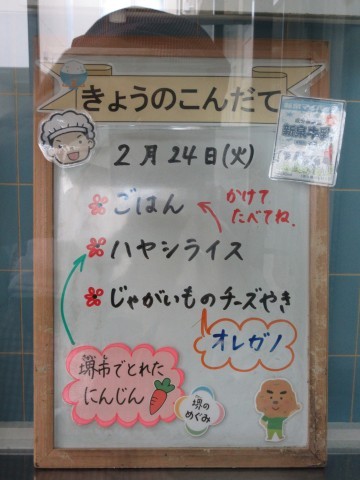 きょうのこんだて
新泉牛乳
2月24日(火)
ごはん
かけて
たべてね。
ハヤシライス
じゃがいものチーズやき
オレガノ
堺市でとれた
にんじん
堺の
めぐみ